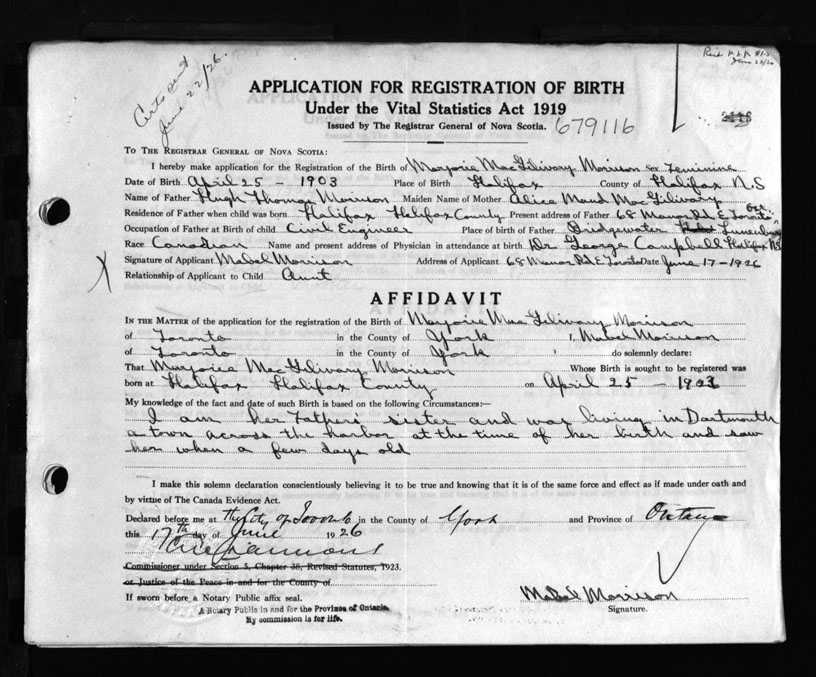 Certs sent
June 22/26.
APPLICATION FOR REGISTRATION OF BIRTH
Under the Vital Statistics Act 1919
Issued by The Registrar General of Nova Scotia. 679116
TO THE REGISTRAR GENERAL OF NOVA SCOTIA:
I hereby make application for the Registration of the Birth of Marjorie MacGilivary Morrison Sex Feminine
Date of Birth April 25 - 1903 Place of Birth Halifax County of Halifax N.S
Name of Father Hugh Thomas Morrison Maiden Name of Mother Alice Maud MacGilivary
Residence of Father when child was born Halifax Halifax County Present address of Father 68 Manor Rd. E Toronto Ont
Occupation of Father at Birth of child Civil Engineer Place of birth of Father Bridgewater Lunenburg
Race Canadian Name and present address of Physician in attendance at birth Dr. George Campbell Halifax NS
X Signature of Applicant Mabel Morrison Address of Applicant 68 Manor Rd. E Toronto Date June 17 - 1926
Relationship of Applicant to Child Aunt
AFFIDAVIT
IN THE MATTER of the application for the registration of the Birth of Marjorie MacGilivary Morrison
of Toronto in the County of York I, Mabel Morrison
of Toronto in the County of York do solemnly declare:
That Marjorie MacGilivary Morrison Whose Birth is sought to be registered was
born at Halifax Halifax County on April 25 - 1903
My knowledge of the fact and date of such Birth is based on the following Circumstances:—
I am her Father's sister and was living in Dartmouth
a town across the harbor at the time of her birth and saw
her when a few days old
I make this solemn declaration conscientiously believing it to be true and knowing that it is of the same force and effect as if made under oath and
by virtue of The Canada Evidence Act.
Declared before me at the City of Toronto in the County of York and Province of Ontario
this 17th day of June 1926
Commissioner under Section 5, Chapter 38, Revised Statutes, 1923.
or Justice of the Peace in and for the County of
If sworn before a Notary Public affix seal.
A Notary Public in and for the Province of Ontario.
My commission is for life.
Mabel Morrison
Signature.